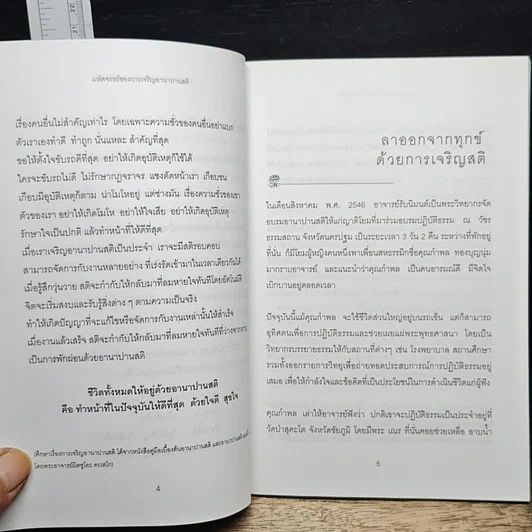 มหัศจรรย์ของการเจริญอานาปานสติ
เรื่องคนอื่นไม่สำคัญเท่าไร โดยเฉพาะความชั่วของคนอื่นอย่าแบก
ตัวเราเองทำดี ทำถูก นั่นแหละ สำคัญที่สุด
ขอให้ตั้งใจขับรถดีที่สุด อย่าให้เกิดอุบัติเหตุก็ใช้ได้
ใครจะขับรถไม่ดี ไม่รักษากฎจราจร แซงตัดหน้าเรา เกือบชน
เกือบมีอุบัติเหตุก็ตาม น่าโมโหอยู่ แต่ช่างมัน เรื่องความชั่วของเขา
ตัวของเรา อย่าให้เกิดโมโห อย่าให้ใจเสีย อย่าให้เกิดอุบัติเหตุ
รักษาใจเป็นปกติ แล้วทำหน้าที่ให้ดีที่สุด
เมื่อเราเจริญอานาปานสติเป็นประจำ เราจะมีสติรอบคอบ
สามารถจัดการกับงานหลายอย่าง ที่เร่งรัดเข้ามาในเวลาเดียวกันได้
เมื่อรู้สึกวุ่นวาย สติจะกำกับให้กลับมาที่ลมหายใจทันทีโดยอัตโนมัติ
จิตจะเริ่มสงบและรับรู้สิ่งต่าง ๆ ตามความเป็นจริง
ทำให้เกิดปัญญาที่จะแก้ไขหรือจัดการกับงานเหล่านั้นให้สำเร็จ
เมื่องานแล้วเสร็จ สติจะกำกับให้กลับมาที่ลมหายใจทันทีที่ว่างจากงาน
เป็นการพักผ่อนด้วยอานาปานสติ
ชีวิตทั้งหมดให้อยู่ด้วยอานาปานสติ
คือ ทำหน้าที่ในปัจจุบันให้ดีที่สุด ด้วยใจดี สุขใจ
(ศึกษาเรื่องการเจริญอานาปานสติ ได้จากหนังสือคู่มือเบื้องต้นอานาปานสติ และอานาปานสติ
โดยพระอาจารย์มิตซูโอะ คเวสโก)
4
ลาออกจากทุกข์
ด้วยการเจริญสติ
ในเดือนสิงหาคม พ.ศ. 2546 อาจารย์รับนิมนต์เป็นพระวิทยากรจัด
อบรมอานาปานสติให้แก่ญาติโยมที่มาร่วมอบรมปฏิบัติธรรม ณ วัชร
ธรรมสถาน จังหวัดนครปฐม เป็นระยะเวลา 3 วัน 2 คืน ระหว่างที่พักอยู่
ที่นั่น ก็มีโยมผู้หญิงคนหนึ่งพาเพื่อนสหธรรมิกชื่อคุณกำพล ทองบุญนุ่ม
มากราบอาจารย์ และแนะนำว่าคุณกำพล เป็นคนอารมณ์ดี มีจิตใจ
เบิกบานอยู่ตลอดเวลา
ปัจจุบันนี้แม้คุณกำพล จะใช้ชีวิตส่วนใหญ่อยู่บนรถเข็น แต่ก็สามารถ
อุทิศตนเพื่อการปฏิบัติธรรมและช่วยเผยแผ่พระพุทธศาสนา โดยเป็น
วิทยากรบรรยายธรรมให้กับสถานที่ต่างๆ เช่น โรงพยาบาล สถานศึกษา
รวมทั้งออกรายการวิทยุเพื่อถ่ายทอดประสบการณ์การปฏิบัติธรรมอยู่
เสมอ เพื่อให้กำลังใจและข้อคิดที่เป็นประโยชน์ในการดำเนินชีวิตแก่ผู้ฟัง
คุณกำพล เล่าให้อาจารย์ฟังว่า ปกติเขาจะปฏิบัติธรรมเป็นประจำอยู่ที่
วัดป่าสุคะโต จังหวัดชัยภูมิ โดยมีพระ เณร ที่นั่นคอยช่วยเหลือ อาบน้ำ
5